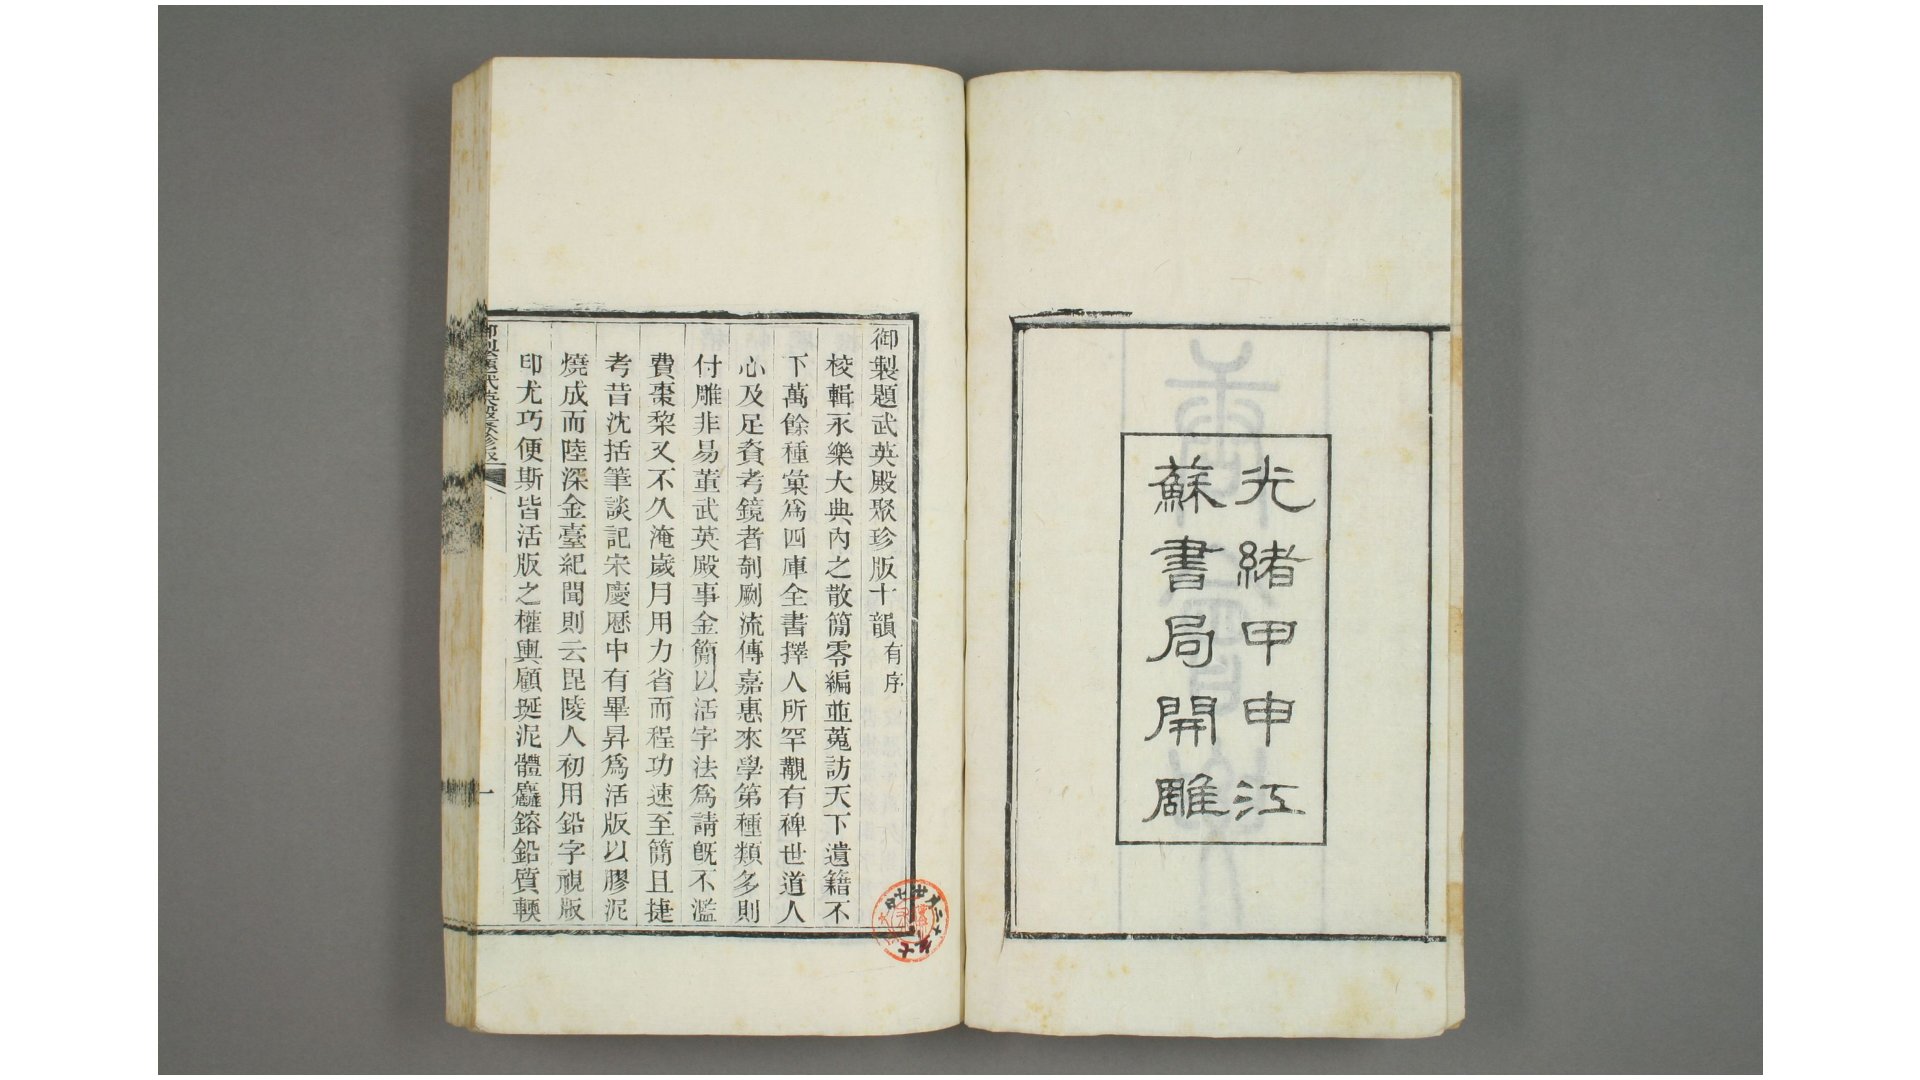 光緒甲申江
蘇書局開雕
御製題武英殿聚珍版十韻有序
校輯永樂大典內之散簡零編並蒐訪天下遺籍不
下萬餘種彙爲四庫全書擇人所罕覯有裨世道人
心及足資考鏡者剞劂流傳嘉惠來學第種類多則
付雕非易董武英殿事金簡以活字法爲請旣不濫
費棗棃又不久淹歲月用力省而程功速至簡且捷
考昔沈括筆談記宋慶厯中有畢昇爲活版以膠泥
燒成而陸深金臺紀聞則云毘陵人初用鉛字視版
印尤巧便斯皆活版之權輿顧埏泥體麤鎔鉛質輭